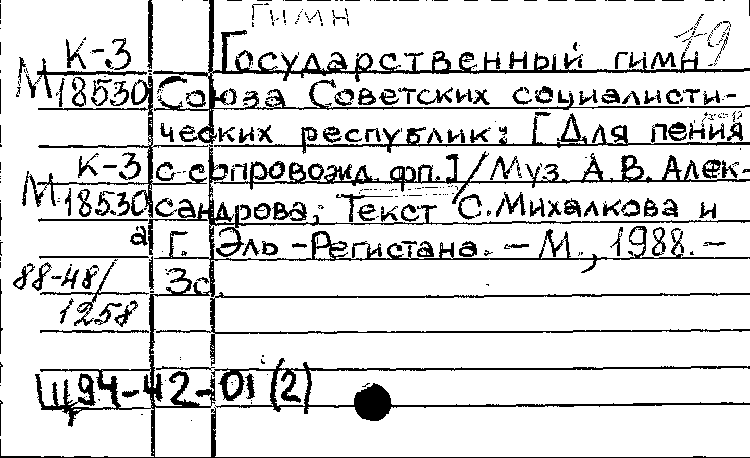 Гимн
К-3 Государственный гимн 19
М 18530 Союза Советских социалисти-
ческих республик: [Для пения
К-3 с сопровожд. фп.] / Муз. А. В. Алек-
М 18530 сандрова; Текст С. Михалкова и
а Г. Эль-Регистана. – М., 1988. –
88-48/ 3с.
1258
Щ94-42-01 (2)